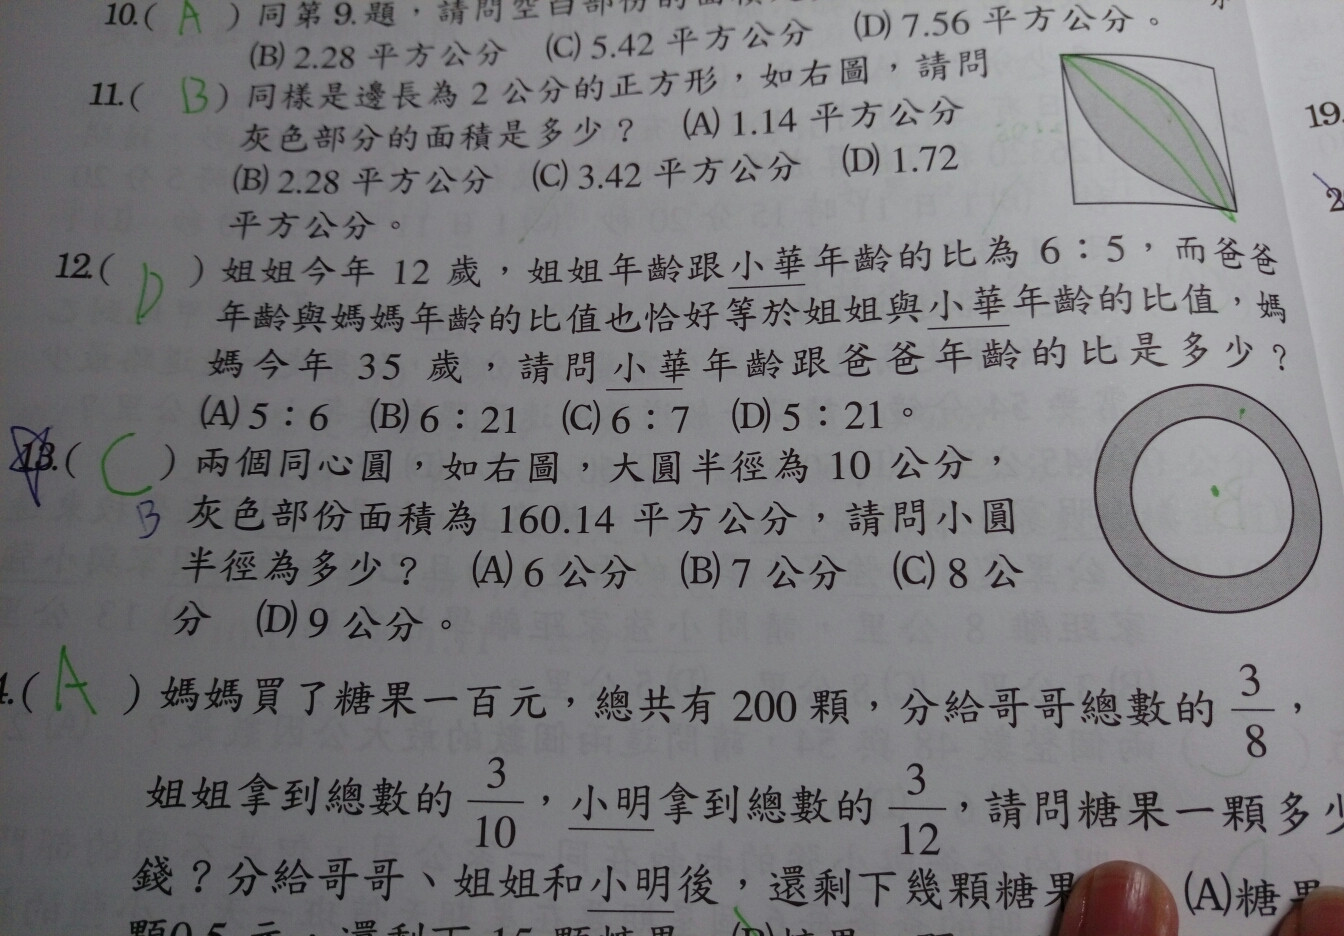 10.( A ) 同第9.題，請問空白部份的面積
(B) 2.28 平方公分 (C) 5.42 平方公分 (D) 7.56 平方公分。
11.( B ) 同樣是邊長為 2 公分的正方形，如右圖，請問
灰色部分的面積是多少？ (A) 1.14 平方公分
(B) 2.28 平方公分 (C) 3.42 平方公分 (D) 1.72
平方公分。
12.( D ) 姐姐今年 12 歲，姐姐年齡跟小華年齡的比為 6：5，而爸爸
年齡與媽媽年齡的比值也恰好等於姐姐與小華年齡的比值，媽
媽今年 35 歲，請問小華年齡跟爸爸年齡的比是多少？
(A) 5：6 (B) 6：21 (C) 6：7 (D) 5：21。
13.( C ) 兩個同心圓，如右圖，大圓半徑為 10 公分，
B
灰色部份面積為 160.14 平方公分，請問小圓
半徑為多少？ (A) 6 公分 (B) 7 公分 (C) 8 公
分 (D) 9 公分。
4.( A ) 媽媽買了糖果一百元，總共有 200 顆，分給哥哥總數的 3/8，
姐姐拿到總數的 3/10，小明拿到總數的 3/12，請問糖果一顆多少
錢？分給哥哥、姐姐和小明後，還剩下幾顆糖果 (A)糖果
顆0.5 元，還剩下 15 顆糖果 (B)糖果一顆
19.
2